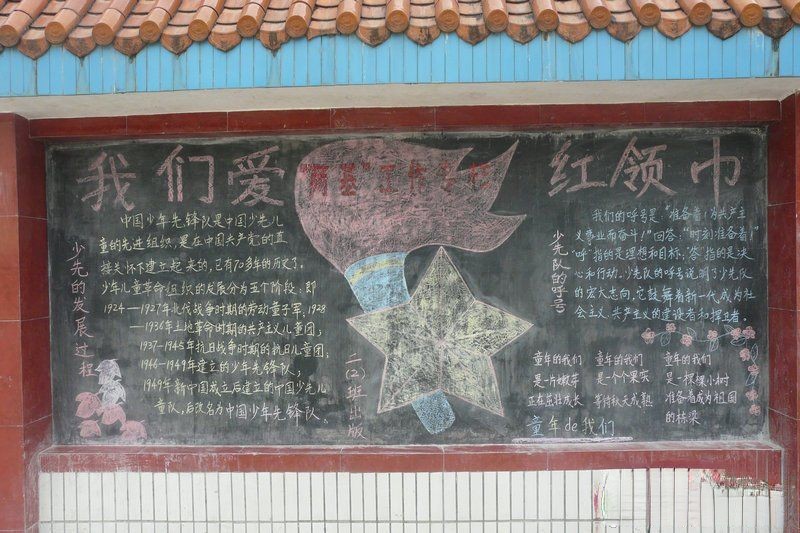 我们爱
红领巾
"两基"工作
少先的发展过程
中国少年先锋队是中国少先儿
童的先进组织，是在中国共产党的直
接关怀下建立起来的，已有70多年的历史了。
少年儿童革命组织的发展分为五个阶段，即
1924—1927年北伐战争时期的劳动童子军，1928
—1936年土地革命时期的共产主义儿童团；
1937-1945年抗日战争时期的抗日儿童团；
1946-1949年建立的少年先锋队；
1949年新中国成立后建立的中国少先儿
童队，后改名为中国少年先锋队。
二(2)班出版
少先队的呼号
我们的呼号是："准备着！为共产主
义事业而奋斗！"回答："时刻准备着！"
"呼"指的是理想和目标，"答"指的是决
心和行动。少先队的呼号说明了少先队
的宏大志向，它鼓舞着新一代成为社会
主义、共产主义的建设者和捍卫者。
童年的我们
是一片嫩芽
正在茁壮成长
童年的我们
是一个个果实
等待秋天成熟
童年的我们
是一棵棵小树
准备着成为祖国
的栋梁
童年de我们